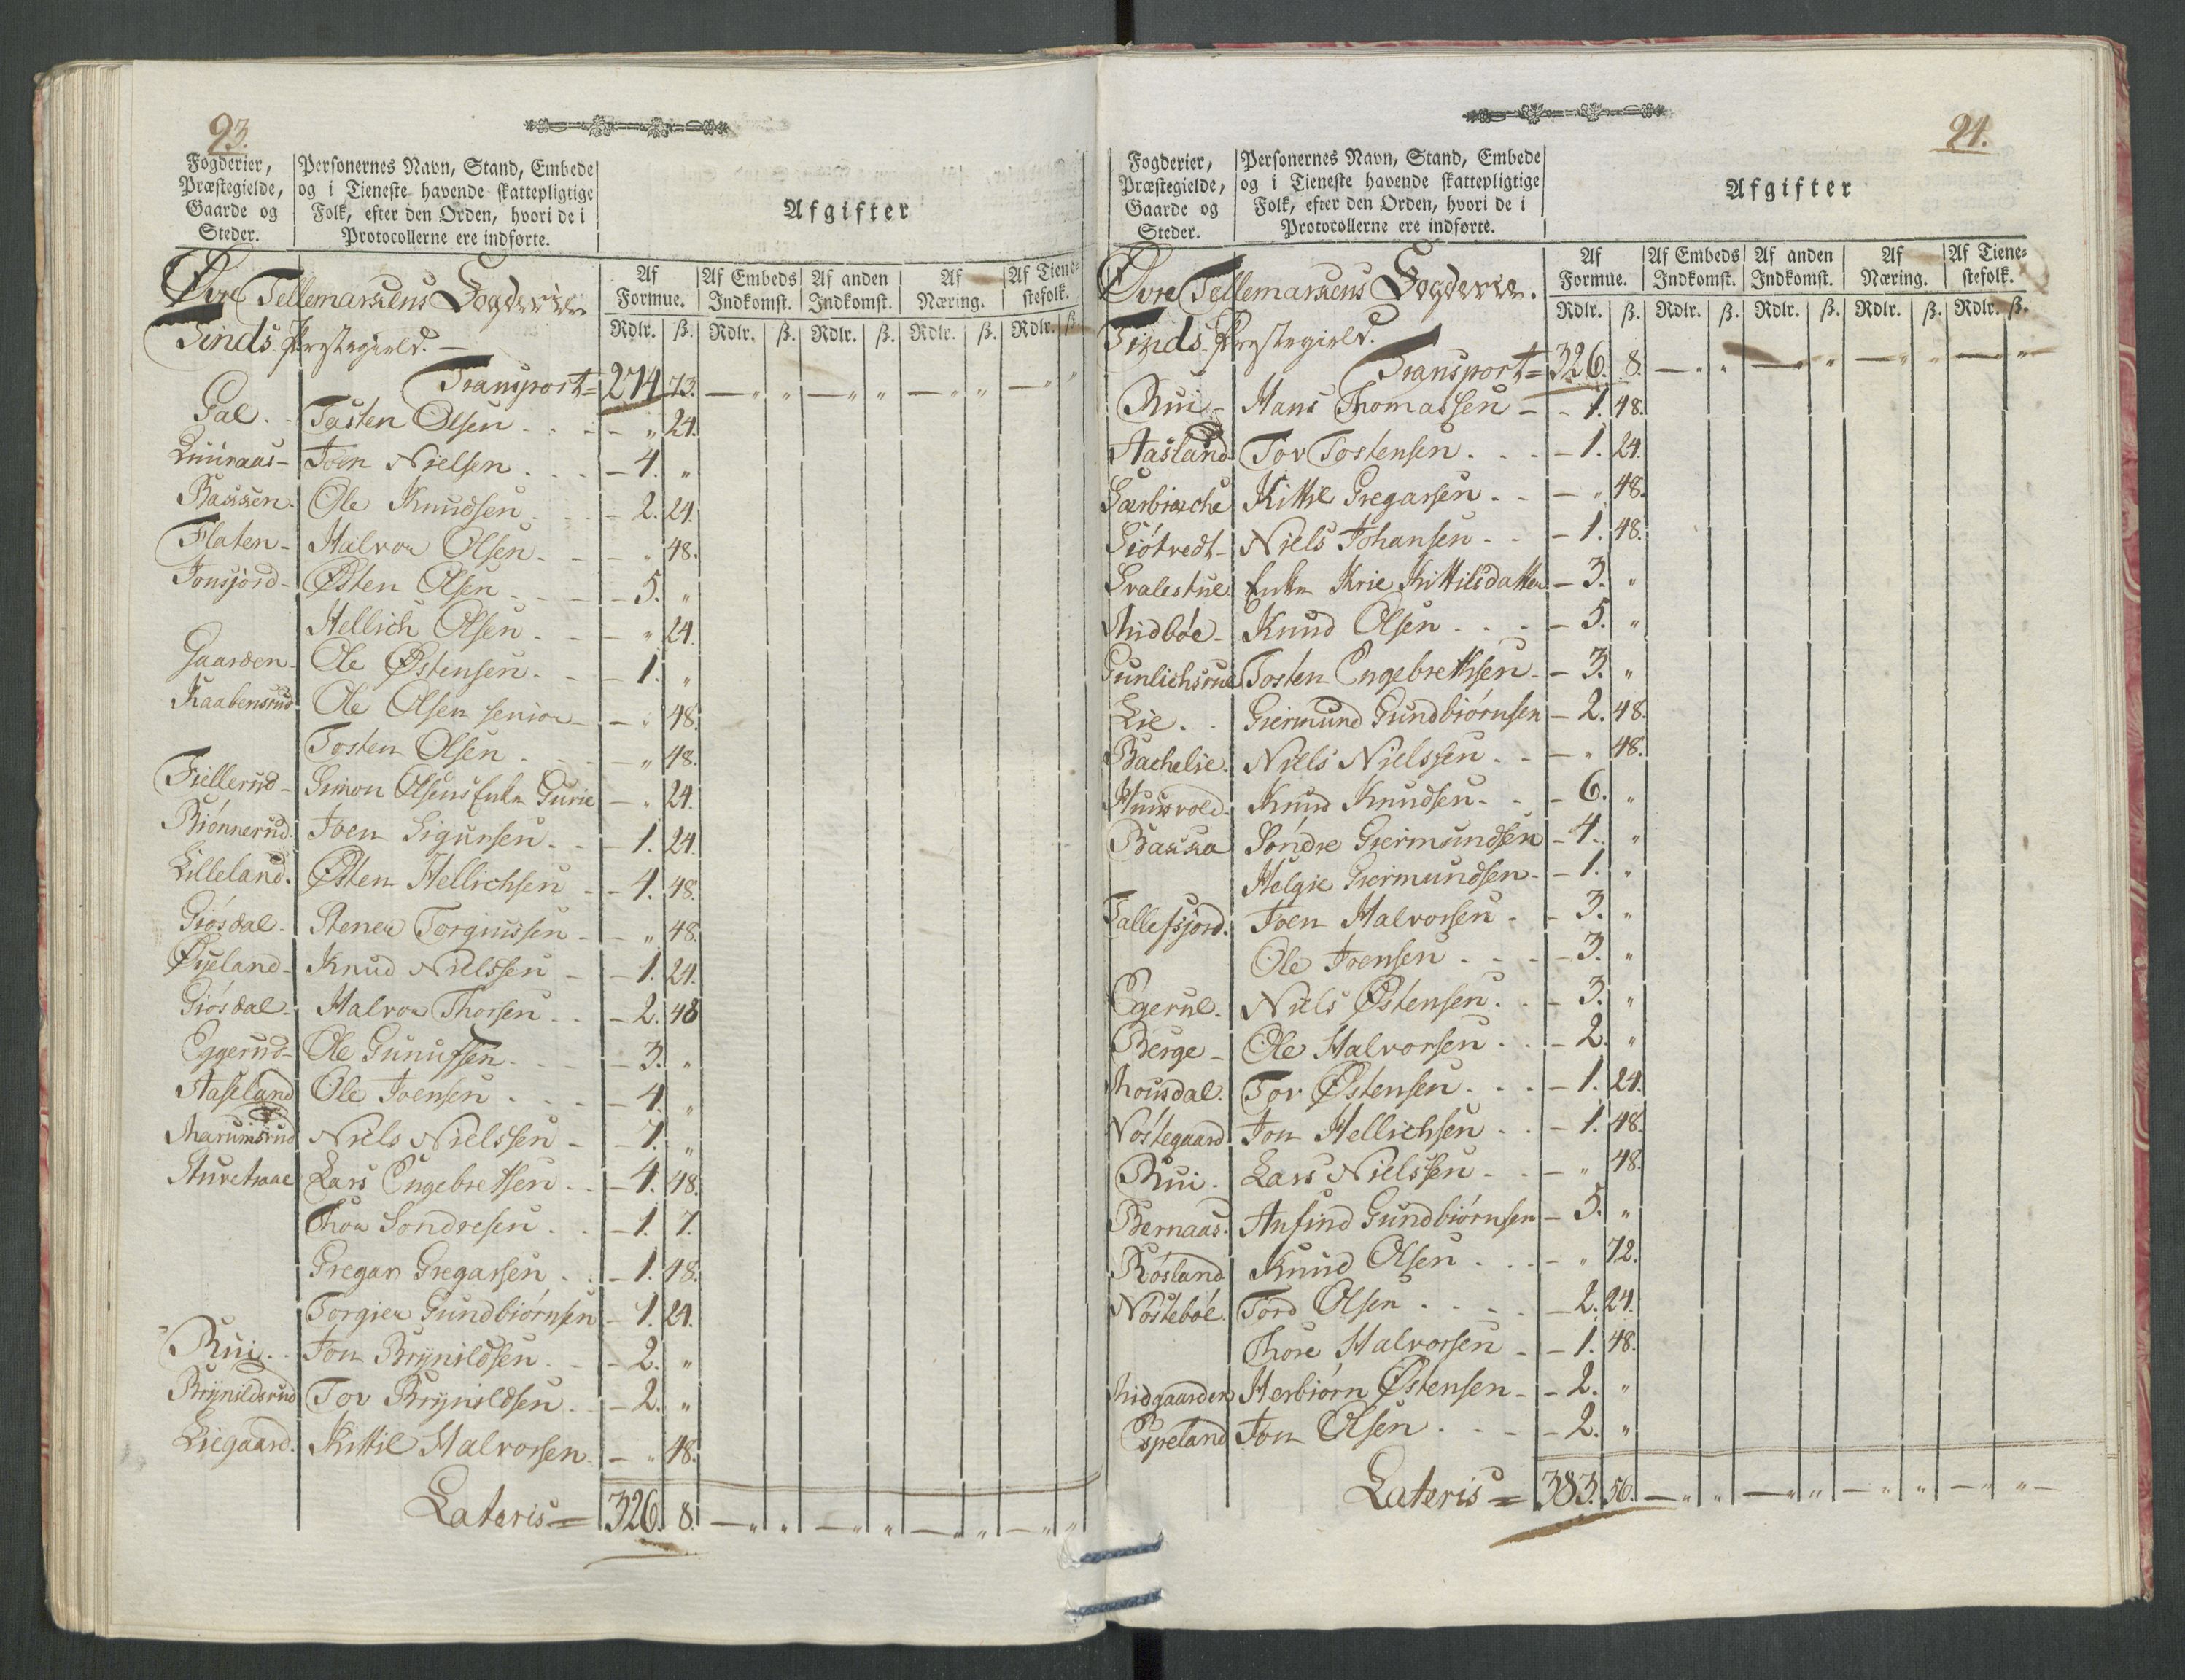 93.
Fogderier, Præstegielde, Gaarde og Steder.
Personernes Navn, Stand, Embede og i Tieneste havende skattepligtige Folk, efter den Orden, hvori de i Protocollerne ere indførte.
Afgifter
Af Formue. Af Embeds Indkomst. Af anden Indkomst. Af Næring. Af Tienestefolk.
Rdlr. ß. Rdlr. ß. Rdlr. ß. Rdlr. ß. Rdlr. ß.
Øvre Tellemarkens Fogderie
Tinds Præstegield. —
Transport = 274 73. — „ „ — „ „ — „ „ — „ „
Gal. Tasten Olsen - „ 24.
Luuraas - Joen Nielsen - 4. „
Bakken. Ole Knudsen - 2. 24.
Flaten - Halvor Olsen - „ 48.
Jonsjord - Østen Olsen - 5. „
Hellich Olsen - „ 24.
Gaarden - Ole Østensen - 1. „
Kaabensrud Ole Olsen senior - „ 48.
Tosten Olsen - „ 48.
Fiellerud - Simon Olsens Enke Gurie - „ 24.
Biønnerud. Joen Sigursen - 1. 24.
Lilleland. Østen Hellichsen - 4. 48.
Giøsdal - Stener Torgiussen - „ 48.
Øyeland - Knud Nielssen - 1. 24.
Giøsdal - Halvor Thorsen - 2. 48
Eggerud - Ole Gunufsen - 3. „
Aaseland Ole Joensen - 4. „
Marumsrud Niels Nielssen - 7. „
Sturetvaae Lars Engebretsen - 4. 48.
Thor Sondresen - 1. 7.
Gregar Gregarsen - 1. 48.
Torgier Gundbiørnsen - 1. 24.
Rui. Jon Brynildsen - 2. „
Brynildsrud Tov Brynildsen - 2. „
Liegaard. Kittil Halvorsen - „ 48.
Lateris = 326. 8. — „ „ — „ „ — „ „ — „ „
94.
Fogderier, Præstegielde, Gaarde og Steder.
Personernes Navn, Stand, Embede og i Tieneste havende skattepligtige Folk, efter den Orden, hvori de i Protocollerne ere indførte.
Afgifter
Af Formue. Af Embeds Indkomst. Af anden Indkomst. Af Næring. Af Tienestefolk.
Rdlr. ß. Rdlr. ß. Rdlr. ß. Rdlr. ß. Rdlr. ß.
Øvre Tellemarkens Fogderie.
Tinds Præstegield.
Transport = 326. 8. — „ „ — „ „ — „ „ — „ „
Rui - Hans Thomassen - 1. 48.
Aasland Tov Tostensen - 1. 24.
Kittil Gregarsen - „ 48.
Siøtvedt - Niels Johansen - 1. 48.
Svalestue Enke Krie Kittilsdatter - 3. „
Midbøe - Knud Olsen - 5. „
Gunlichsrue Tosten Engebrethsen - 3. „
Lie. Giermund Gundbiørnsen - 2. 48.
Bachelie. Niels Nielssen - „ 48.
Huusvold Knud Knudsen - 6. „
Bakka Søndre Giermundsen - 4. „
Helgie Giermundsen - 1. „
Tallefsjord. Joen Halvorsen - 3. „
Ole Joensen - 3. „
Egerue. Niels Østensen - 3. „
Berge - Ole Halvorsen - 2. „
Mousdal. Tov Østensen - 1. 24.
Nøstegaard Jon Hellichsen - 1. 48.
Rui. Lars Nielssen - „ 48.
Bernaas. Anfind Gundbiørnsen - 5. „
Røsland Knud Olsen - „ 72.
Nøstebøe. Tord Olsen - 2. 24.
Thore Halvorsen - 1. 48.
Midgaarden Herbiørn Østensen - 2. „
Espeland Jon Olsen - 2. „
Lateris = 383. 56. — „ „ — „ „ — „ „ — „ „